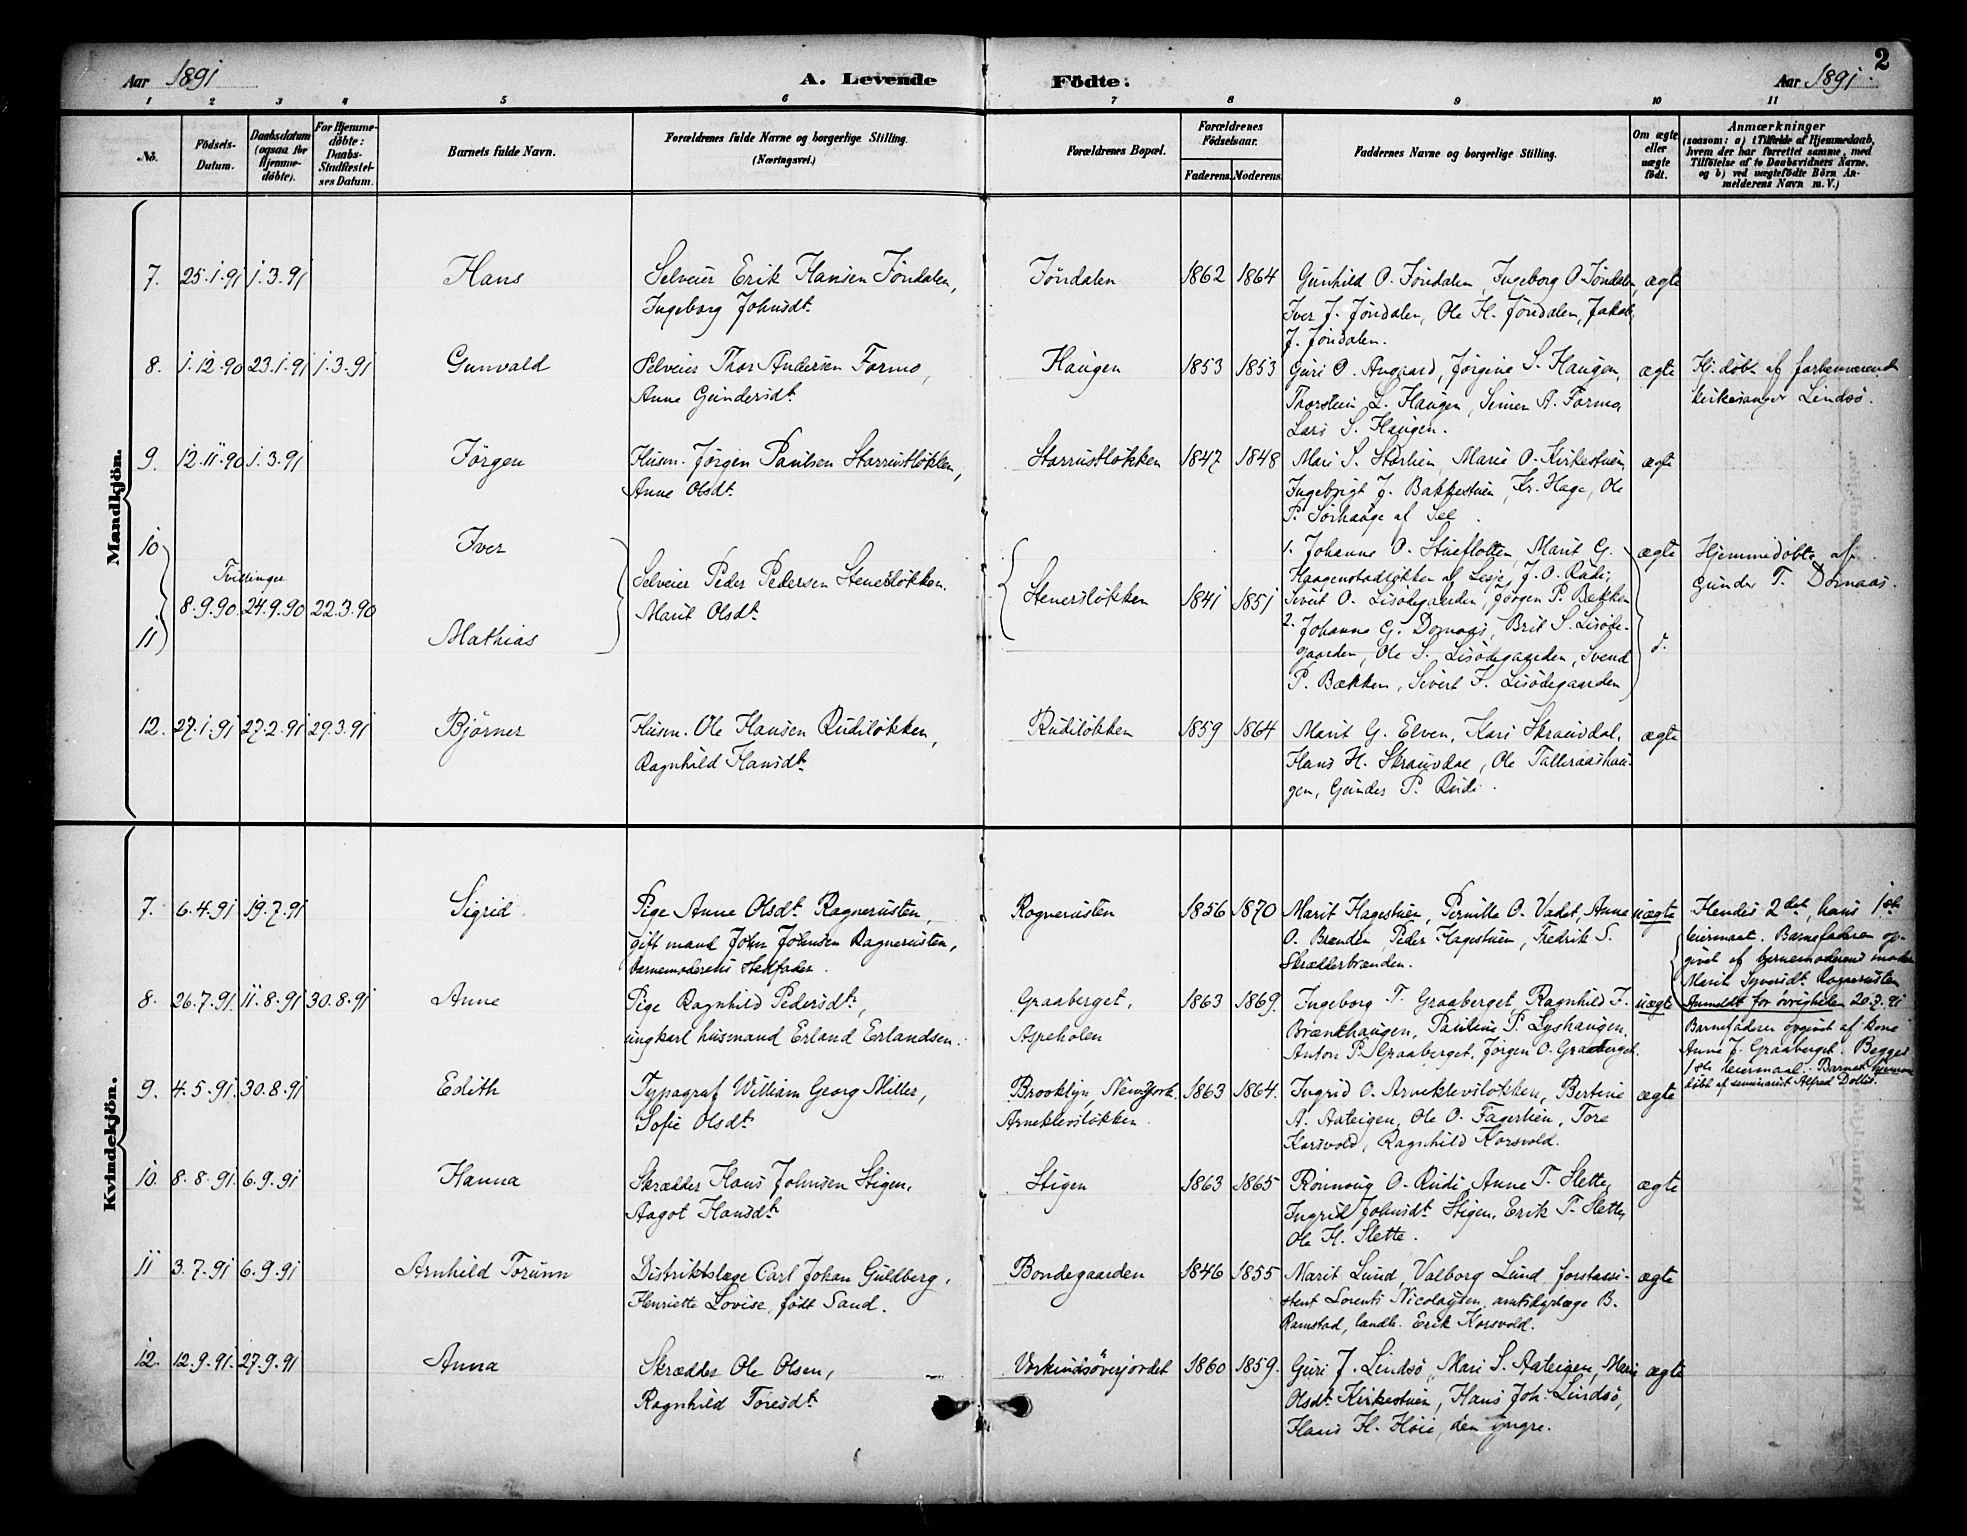 2
Aar 1891 A. Levende Födte. Aar 1891.
1 2 3 4 5 6 7 8 9 10 11
No. Födsels-Datum. Daabsdatum (ogsaa for Hjemmedöbte). For Hjemmedöbte: Daabs-Stadfæstelses Datum. Barnets fulde Navn. Forældrenes fulde Navne og borgerlige Stilling. (Næringsvei.) Forældrenes Bopæl. Forældrenes Födselsaar. Faderens. Moderens. Faddernes Navne og borgerlige Stilling. Om ægte eller uægte födt. Anmærkninger (saasom: a) i Tilfælde af Hjemmedaab, hvem der har forrettet samme, med Tilföielse af to Daabsvidners Navne. og b) ved uægtefödte Börn Anmelderens Navn m. V.)
Mandkjön.
7. 25.1.91 1.3.91 Hans Selveier Erik Hansen Jöndalen, Jöndalen 1862 1864 Gunhild O. Jöndalen, Ingeborg O. Jöndalen, ægte
Ingeborg Johnsdt. Iver J. Jöndalen, Ole H. Jöndalen, Jakob
J. Jöndalen.
8. 1.12.90 23.1.91 1.3.91 Gunvald Selveier Thor Andersen Formo, Haugen 1853 1853 Guri O. Angaard, Jörgine S. Haugen, ægte Hj. döbt af forhenværende
Anne Gundersdt. Thorstein L. Haugen, Simen A. Formo, kirkesanger Lindsö.
Lars S. Haugen.
9. 12.11.90 1.3.91 Jörgen Husm. Jörgen Paulsen Starrustlökken, Starrustlökken 1847 1848 Mari S. Storlien, Marie O. Kirkestuen, ægte
Anne Olsdt. Ingebrigt J. Bakkestuen, Kr. Hage, Ole
P. Sörhauge af Sel.
10 Iver 1. Johanne O. Stueflotten, Marit G. ægte Hjemmedöbte af
Tvillinger Selveier Peder Pedersen Stenerslökken. Haagenstadlökken af Lesje, J. O. Rudi, Gunder T. Domaas.
8.9.90 24.9.90 22.3.90 Marit Olsdt. Stenerslökken 1841 1851 Sivert O. Lisödegaarden, Jörgen P. Bækken
11 Mathias 2. Johanne G. Domaas, Brit S. Lisöde-
gaarden, Ole S. Lisödegaarden, Svend d.
P. Bækken, Sivert H. Lisödegaarden
12. 27.1.91 27.2.91 29.3.91 Björner Husm. Ole Hansen Rudilökken, Rudilökken 1859 1864 Marit G. Elven, Kari Skrauvdal, ægte
Ragnhild Hansdt. Hans H. Skrauvdal, Ole Talleraashau-
gen, Gunder P. Rudi.
Kvindekjön.
7. 6.4.91 19.7.91 Sigrid Pige Anne Olsdt. Ragnerusten, Rognerusten 1856 1870 Marit Hagestuen, Pernille O. Vadet, Anne uægte Hendes 2det, hans 1ste
gift mand John Johnsen Ragnerusten, O. Brænden, Peder Hagestuen, Fredrik S. leiermaal. Barnefaderen op-
barnemoderens stedfader. Skrædderbrænden. givet af barnemoderens moder
Marit Syversdt. Ragnerusten
8. 26.7.91. 11.8.91 30.8.91 Anne Pige Ragnhild Pedersdt., Graaberget, 1863 1869. Ingeborg T. Graaberget, Ragnhild F. uægte Anmeldt for övrigheten 20.7.91
ungkarl husmand Erland Erlandsen. Aspeholen Brændhaugen, Pauline P. Lyshaugen, Barnefaderen opgivet af kone
Anton P. Graaberget, Jörgen O. Graaberget. Anne J. Graaberget. Begges
1ste leiermaal. Barnet hjemme
9. 4.5.91 30.8.91 Edith Typograf William Georg Miller, Brooklyn, Newyork. 1863 1864. Ingrid O. Arneklevslökken, Bertine ægte döbt af seminarist Alfred Dolli.
Sofie Olsdt. Arneklevslökken. A. Aateigen, Ole O. Fagerlien, Tore
Korsvold, Ragnhild Korsvold.
10. 8.8.91. 6.9.91 Hanna Skrædder Hans Johnsen Stigen, Stigen 1863 1865 Rönnoug O. Rudi, Anne T. Slette, ægte
Aagot Hansdt. Ingrid Johnsdt. Stigen, Erik T. Slette,
Ole H. Slette.
11 3.7.91 6.9.91 Arnhild Torunn Distriktslæge Carl Johan Guldberg, Bondegaarden 1846 1855 Marit Lund, Valborg Lund, forstassi- ægte
Henriette Lovise, födt Sand. stent Lorents Nicolaysen, amtsdyrlæge B.
Ramstad, landh. Erik Korsvold.
12. 12.9.91. 27.9.91 Anna Skrædder Ole Olsen, Vorkindsöverjordet 1860 1859. Guri J. Lindsö, Mari S. Aateigen, Marie ægte
Ragnhild Toresdt. Olsdt. Kirkestuen, Hans Joh. Lindsö,
Hans H. Höie, den yngre.